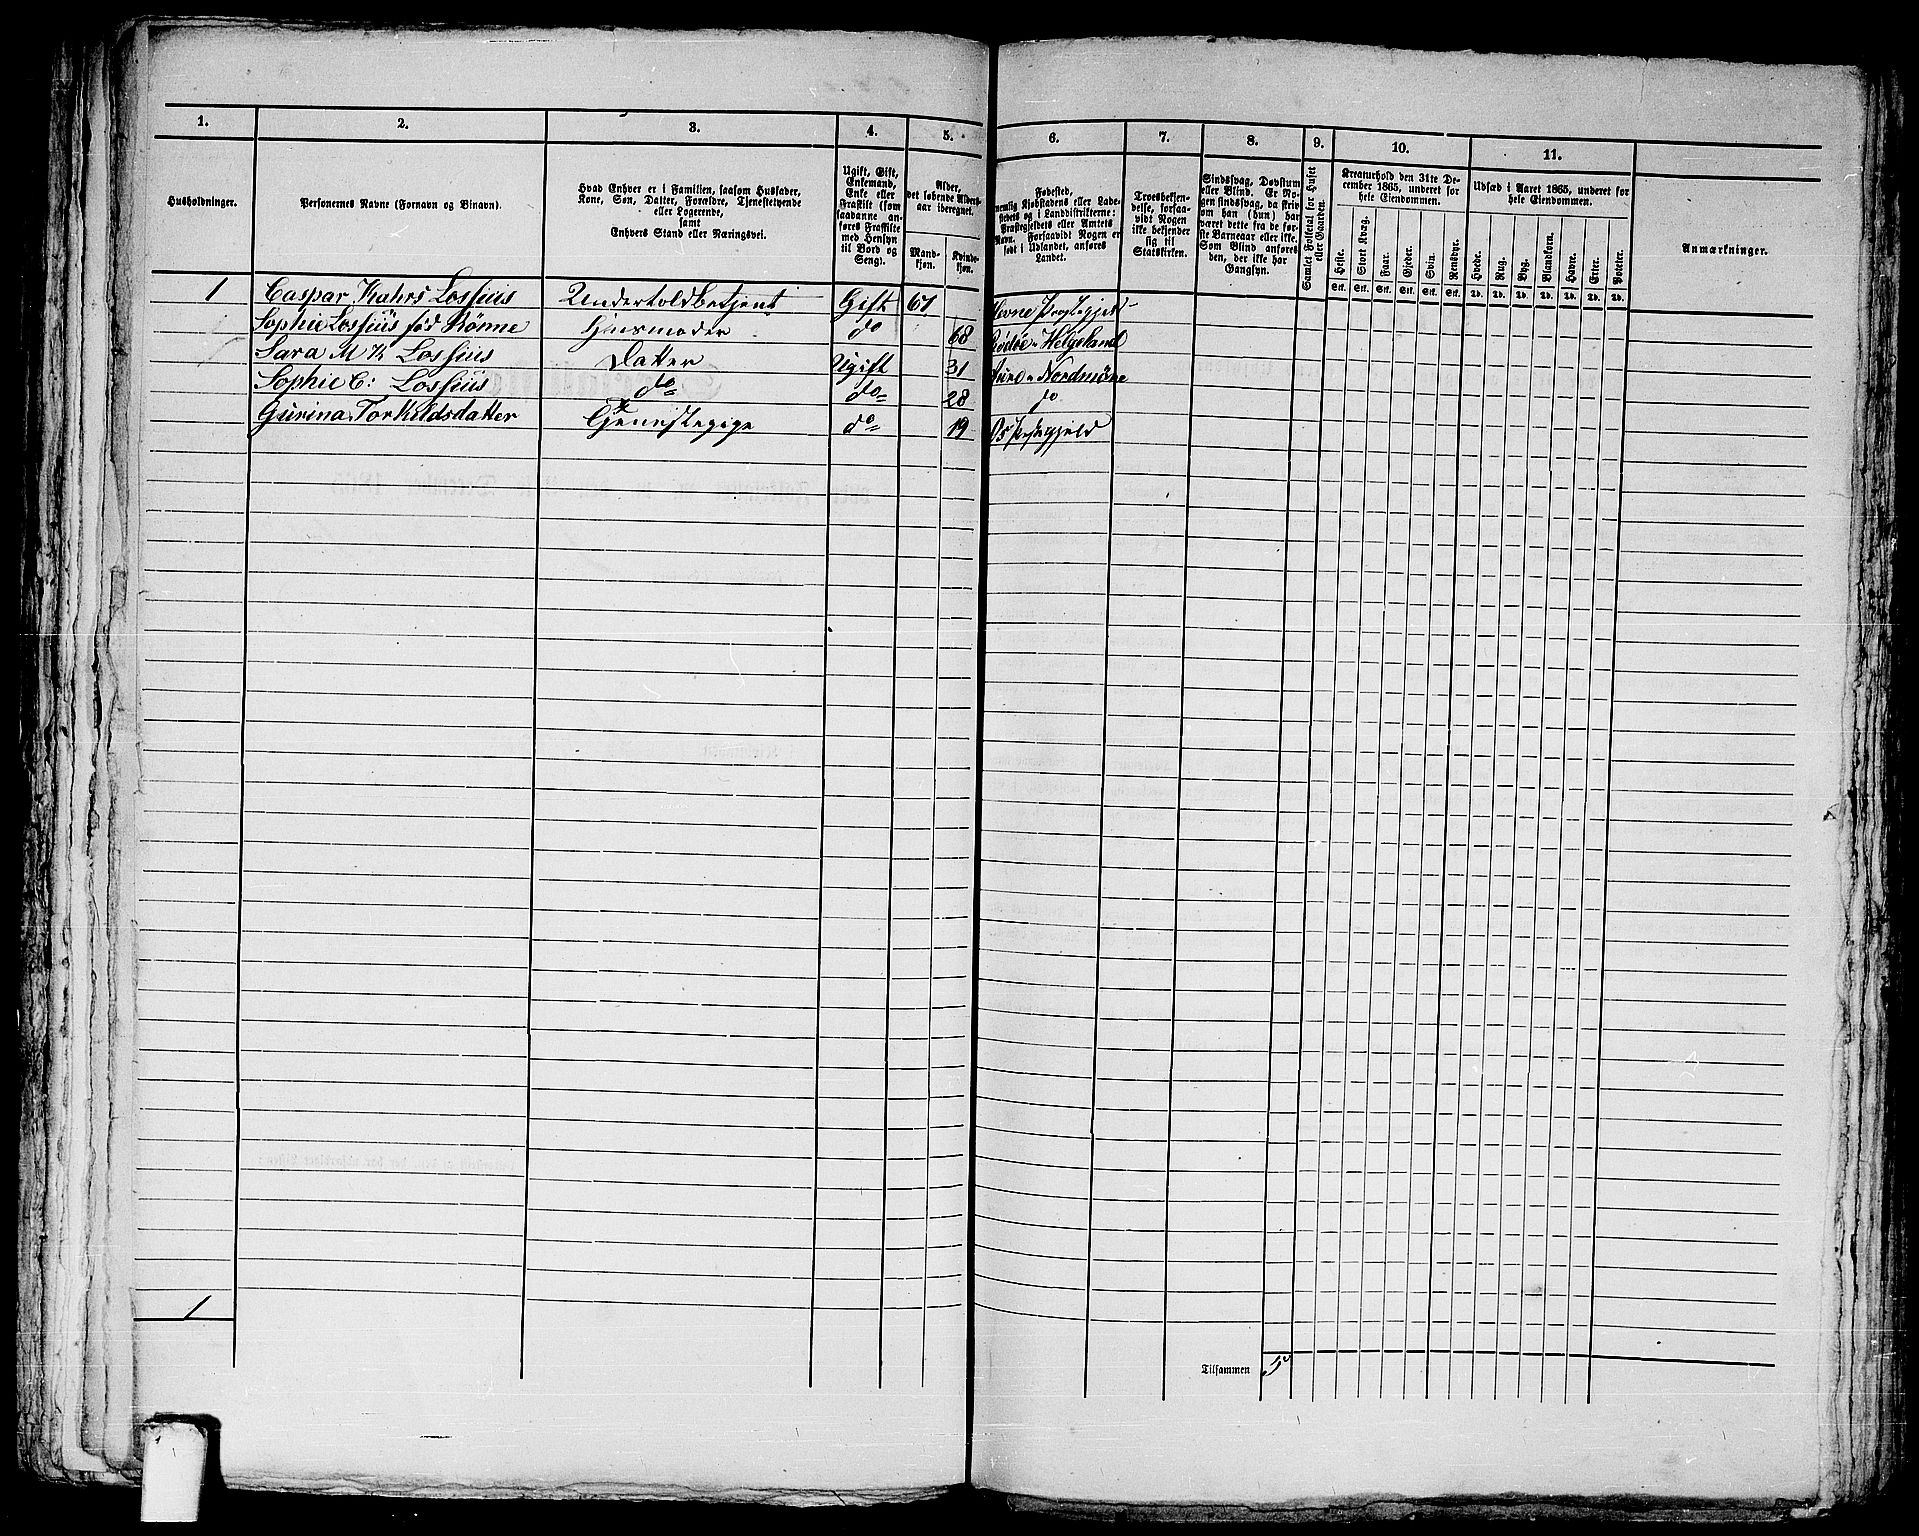 1. 2. 3. 4. 5. 6. 7. 8. 9. 10. 11.
Husholdninger.
Personernes Navne (Fornavn og Binavn).
Hvad Enhver er i Familien, saasom Husfader,
Kone, Søn, Datter, Forældre, Tjenestetyende
eller Logerende,
samt
Enhvers Stand eller Næringsvei.
Ugift, Gift,
Enkemand,
Enke eller
Fraskilt (som
saadanne an-
føres Fraskilte
med Hensyn
til Bord og
Seng).
Alder,
det løbende Alders-
aar iberegnet.
Mand-
kjøn.
Kvinde-
kjøn.
Fødested,
nemlig Kjøbstadens eller Lade-
stedets og i Landdistrikterne:
Præstegjeldets eller Amtets
Navn. Forsaavidt Nogen er
født i Udlandet, anføres
Landet.
Troesbekjen-
delse, forsaa-
vidt Nogen
ikke bekjender
sig til
Statskirken.
Sindssvag, Døvstum
eller Blind. Er No-
gen sindssvag, da skriv
om han (hun) har
været dette fra de før-
ste Barneaar eller ikke.
Som Blind anføres
den, der ikke har
Gangsyn.
Samlet Folketal for Huset
eller Gaarden.
Kreaturhold den 31te De-
cember 1865, underet for
hele Eiendommen.
Heste. Stort Kvæg. Faar. Gjeder. Svin. Rensdyr.
Stk. Stk. Stk. Stk. Stk. Stk.
Udsæd i Aaret 1865, underet for
hele Eiendommen.
Hvede. Rug. Byg. Blandkorn. Havre. Erter. Poteter.
Td. Td. Td. Td. Td. Td. Td.
Anmærkninger.
1 Caspar Kahrs Lossius Undertoldbetjent Gift 67 Hevne Præstegjeld
Sophie Lossius fød Rønne Husmoder do 68 Rødøe Helgeland
Sara M K Lossius Datter Ugift 31 Aure Nordmøre
Sophie C: Lossius do do 28 do
Gurina Torkildsdatter Tjenestepige do 19 Os Præstegjeld
1
Tilsammen 5